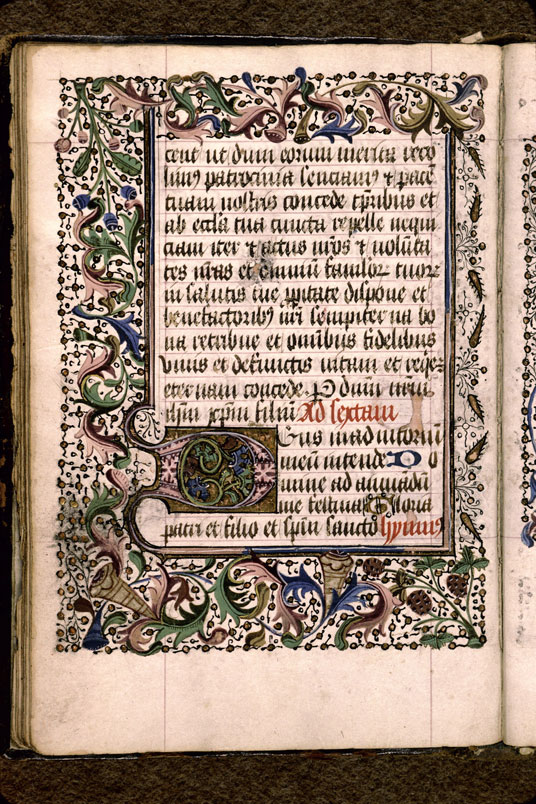 cent ut dum eorum merita reco
limus patrocinia senciamus et pacē
tuam nostris concede tp̄ribus et
ab ecclīa tua cuncta repelle nequi
ciam iter et actus nr̄os et volūta
tes nr̄as et omniū famulor tuorz
in salutis tue p̄speritate dispone et
benefactoribz nr̄i sempiterna bo
na retribue et omībus fidelibus
viuis et defunctis vitam et req̄ez
eternam concede. P dnm̄ nr̄m
ihm̄ xp̄m filiū Ad sextam
Deus in adiutoriū
meū intende Do
mine ad adiuuādū
me festina Gloria
patri et filio et spūi sancto hymnus